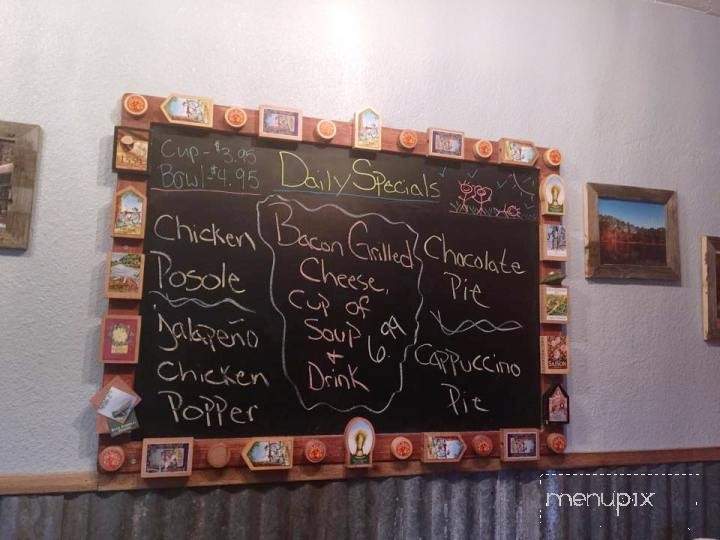 Cup - $3.95
Bowl $4.95
Daily Specials
Chicken
Posole
Jalapeño
Chicken
Popper
Bacon Grilled
Cheese,
Cup of
Soup
+
Drink
6.09
Chocolate
Pie
Cappuccino
Pie
menupix